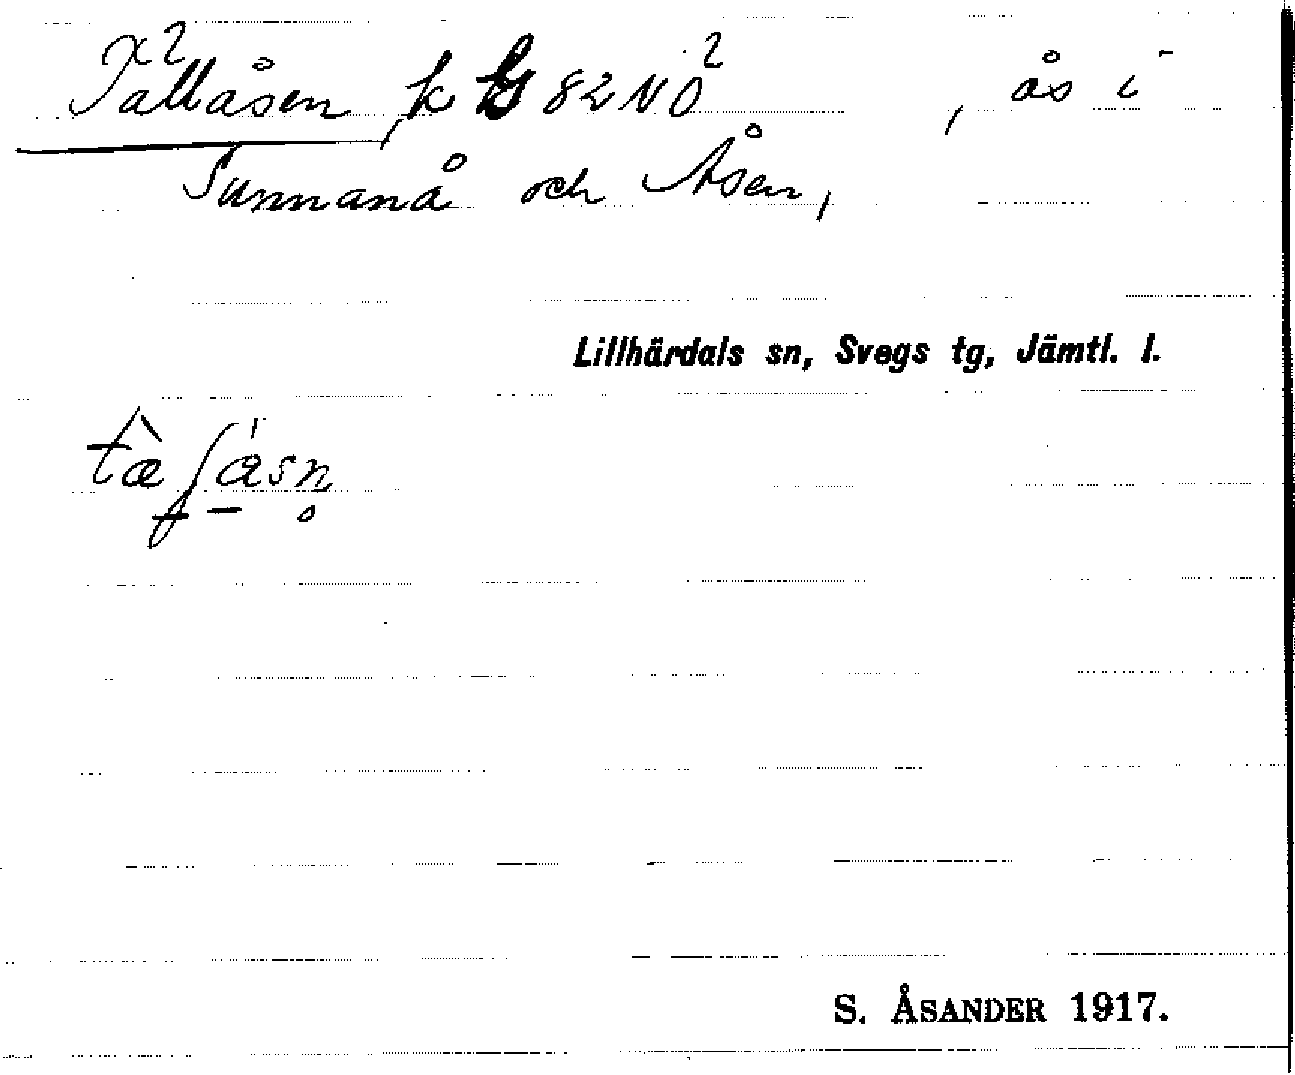 Tallåsen, k G 82 NO² , ås i
Tunnanå och Åsen,
Lillhärdals sn, Svegs tg, Jämtl. l.
S. ÅSANDER 1917.